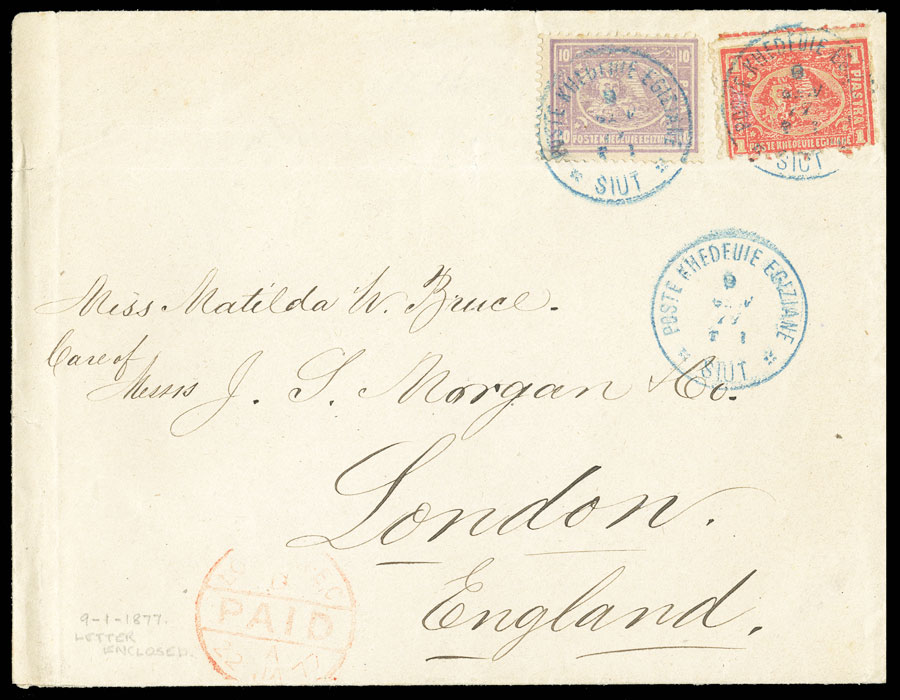 10 10
POSTE KHEDEUIE EGIZIANE
SIUT
1 PIASTRA 1
POSTE KHEDEUIE EGIZIANE
SIUT
POSTE KHEDEUIE EGIZIANE
9
77
SIUT
Miss Matilda W. Bruce.
Care of
Messrs J. S. Morgan & Co.
London.
England.
PAID
9-1-1877.
LETTER
ENCLOSED.